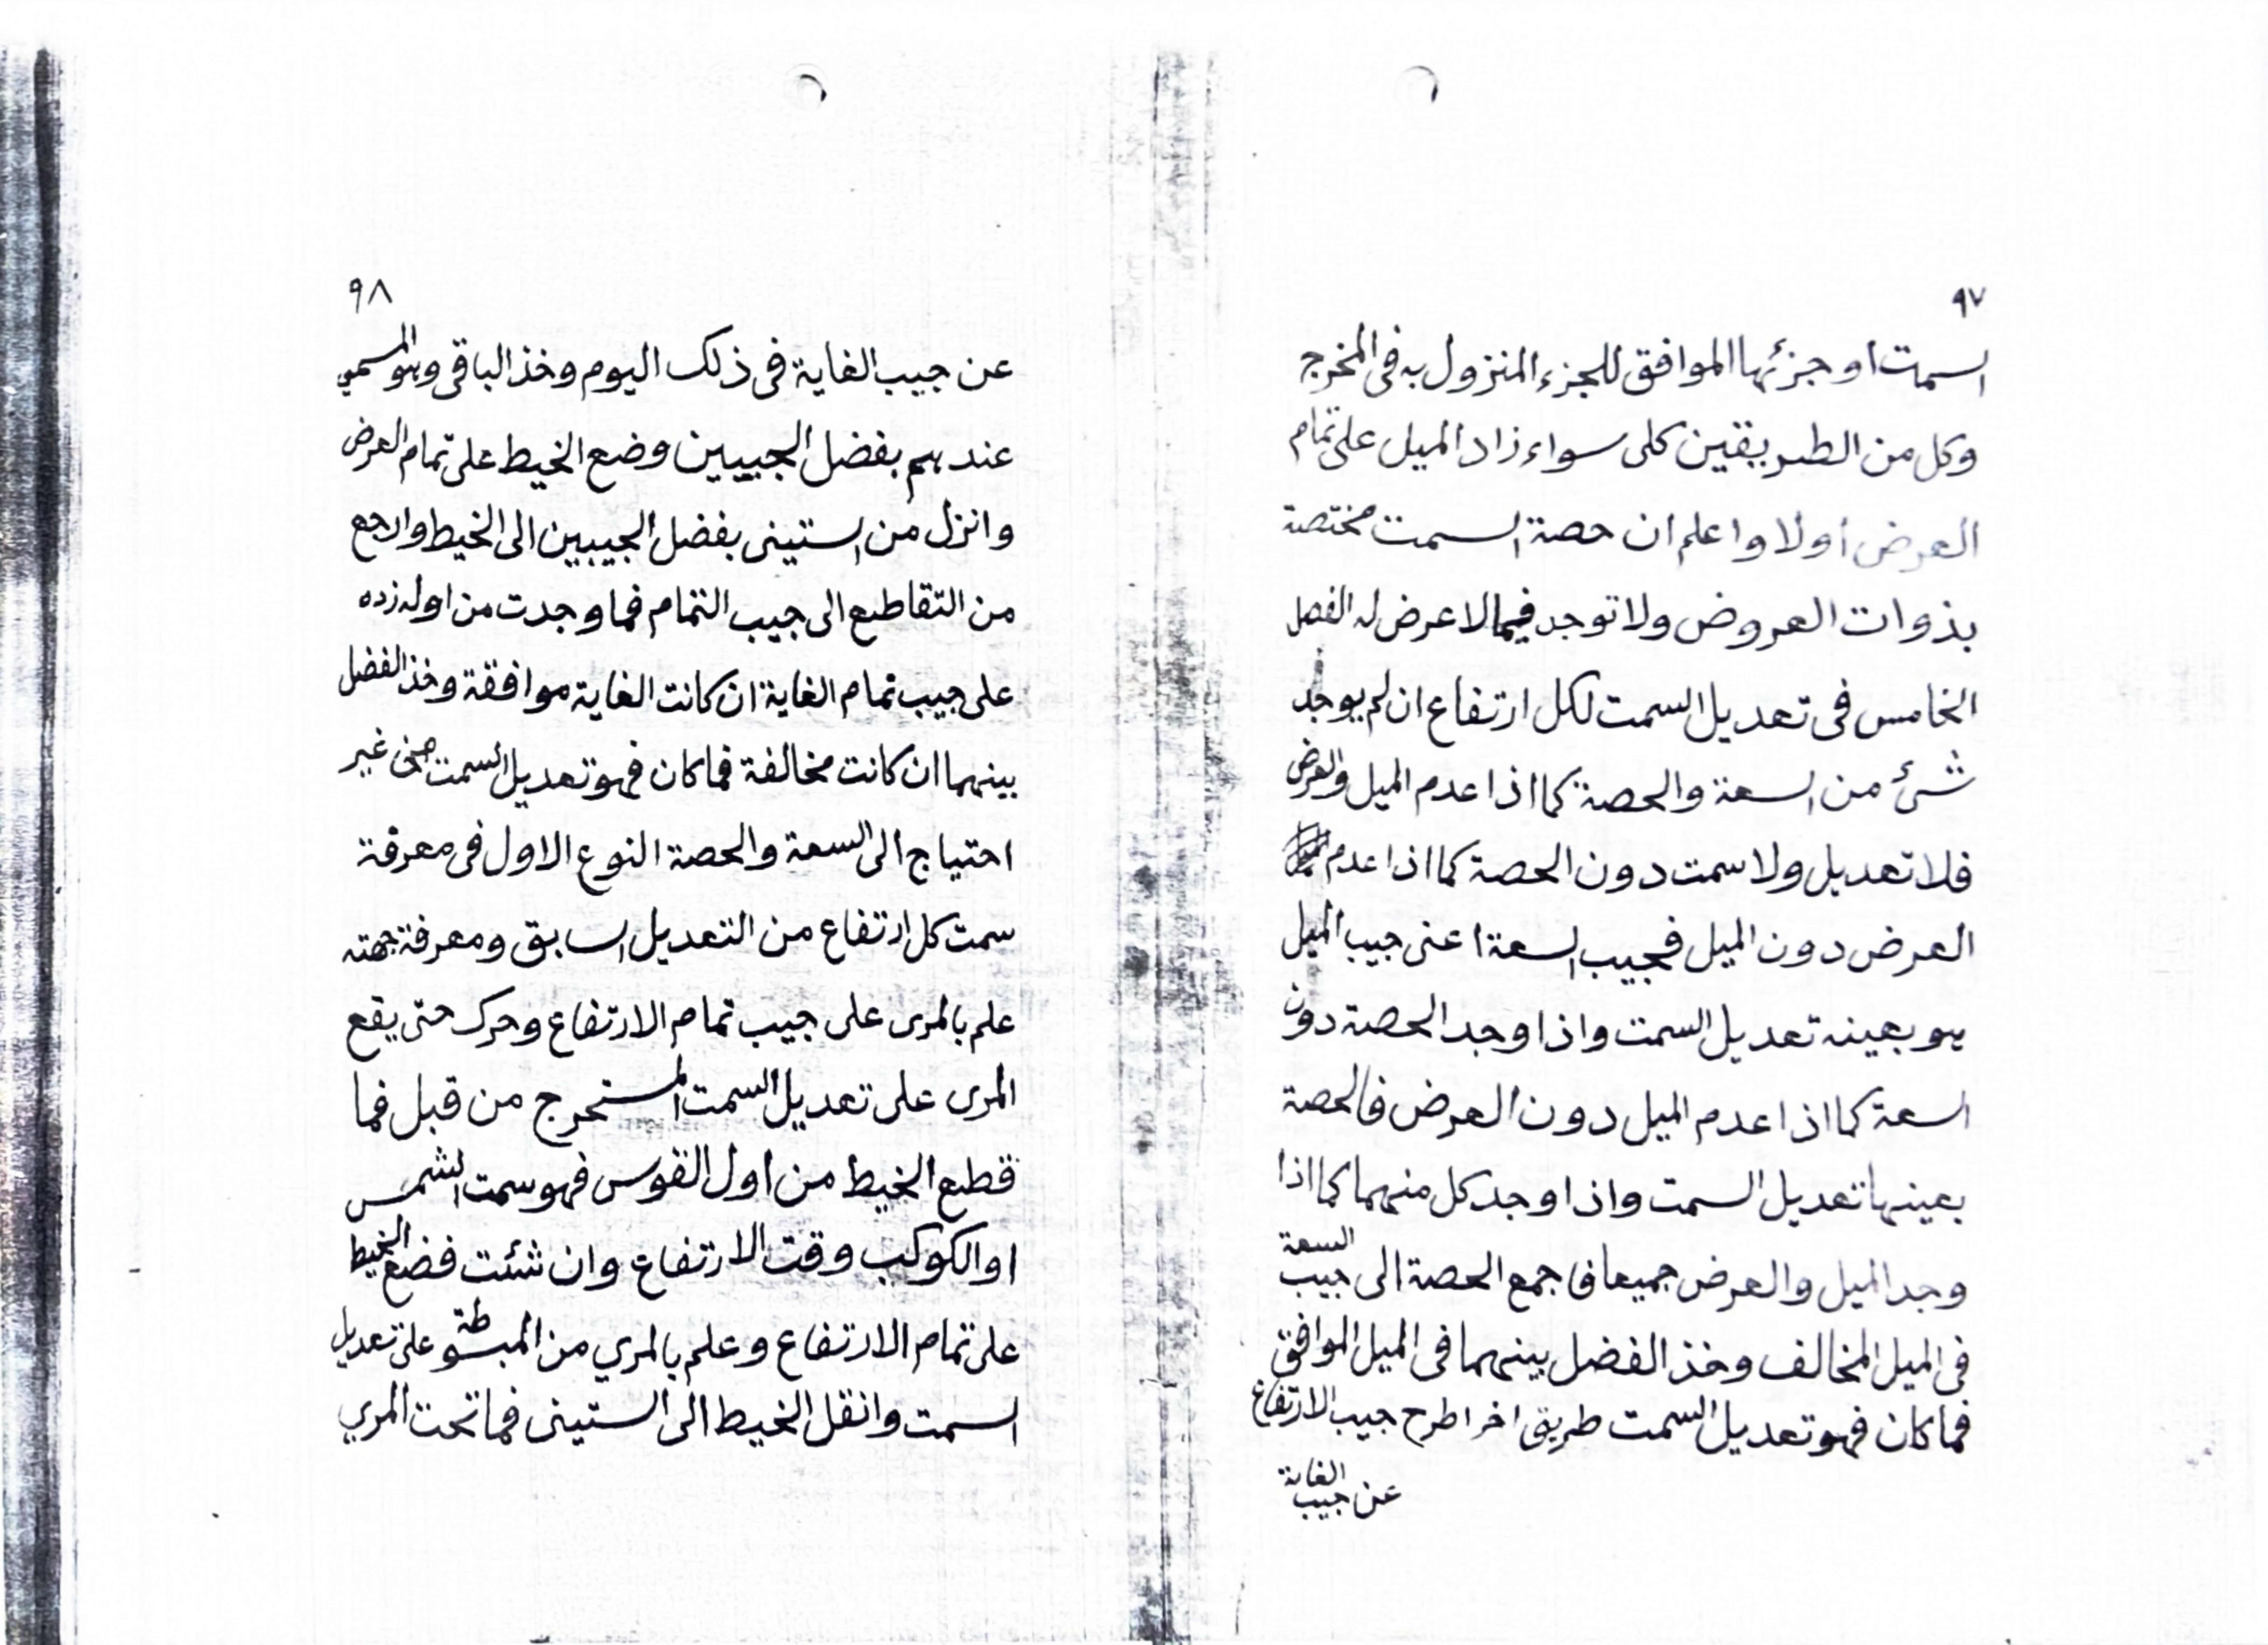 ٩٧
السمت او جزئها الموافق للجزء المنزول به فى المخرج
وكل من الطريقين كلى سواء زاد الميل على تمام
العرض اولا واعلم ان حصة السمت مختصة
بذوات العروض ولا توجد فيما لا عرض له الفصل
الخامس فى تعديل السمت لكل ارتفاع ان لم يوجد
شئ من السعة والحصة كما اذا عدم الميل والعرض
فلا تعديل ولا سمت دون الحصة كما اذا عدم
العرض دون الميل فجيب السعة اعنى جيب الميل
هو بعينه تعديل السمت واذا وجد الحصة دون
السعة كما اذا عدم الميل دون العرض فالحصة
بعينها تعديل السمت واذا وجد كل منهما كما اذا
وجد الميل والعرض جميعا فاجمع الحصة الى جيب السعة
فى الميل المخالف وخذ الفضل بينهما فى الميل الموافق
فما كان فهو تعديل السمت طريق اخر اطرح جيب الارتفاع
عن جيب الغاية
٩٨
عن جيب الغاية فى ذلك اليوم وخذ الباقى وهو المسمى
عندهم بفضل الجيبين وضع الخيط على تمام العرض
وانزل من الستينى بفضل الجيبين الى الخيط وارجع
من التقاطع الى جيب التمام فما وجدت من اوله زده
على جيب تمام الغاية ان كانت الغاية موافقة وخذ الفضل
بينهما ان كانت مخالفة فما كان فهو تعديل السمت من غير
احتياج الى السعة والحصة النوع الاول فى معرفة
سمت كل ارتفاع من التعديل السابق ومعرفة جهته
علم بالمرى على جيب تمام الارتفاع وحرك حتى يقع
المرى على تعديل السمت المستخرج من قبل فما
قطع الخيط من اول القوس فهو سمت الشمس
او الكوكب وقت الارتفاع وان شئت فضع الخيط
على تمام الارتفاع وعلم بالمري من المبسوطة على تعديل
السمت وانقل الخيط الى الستينى فما تحت المري